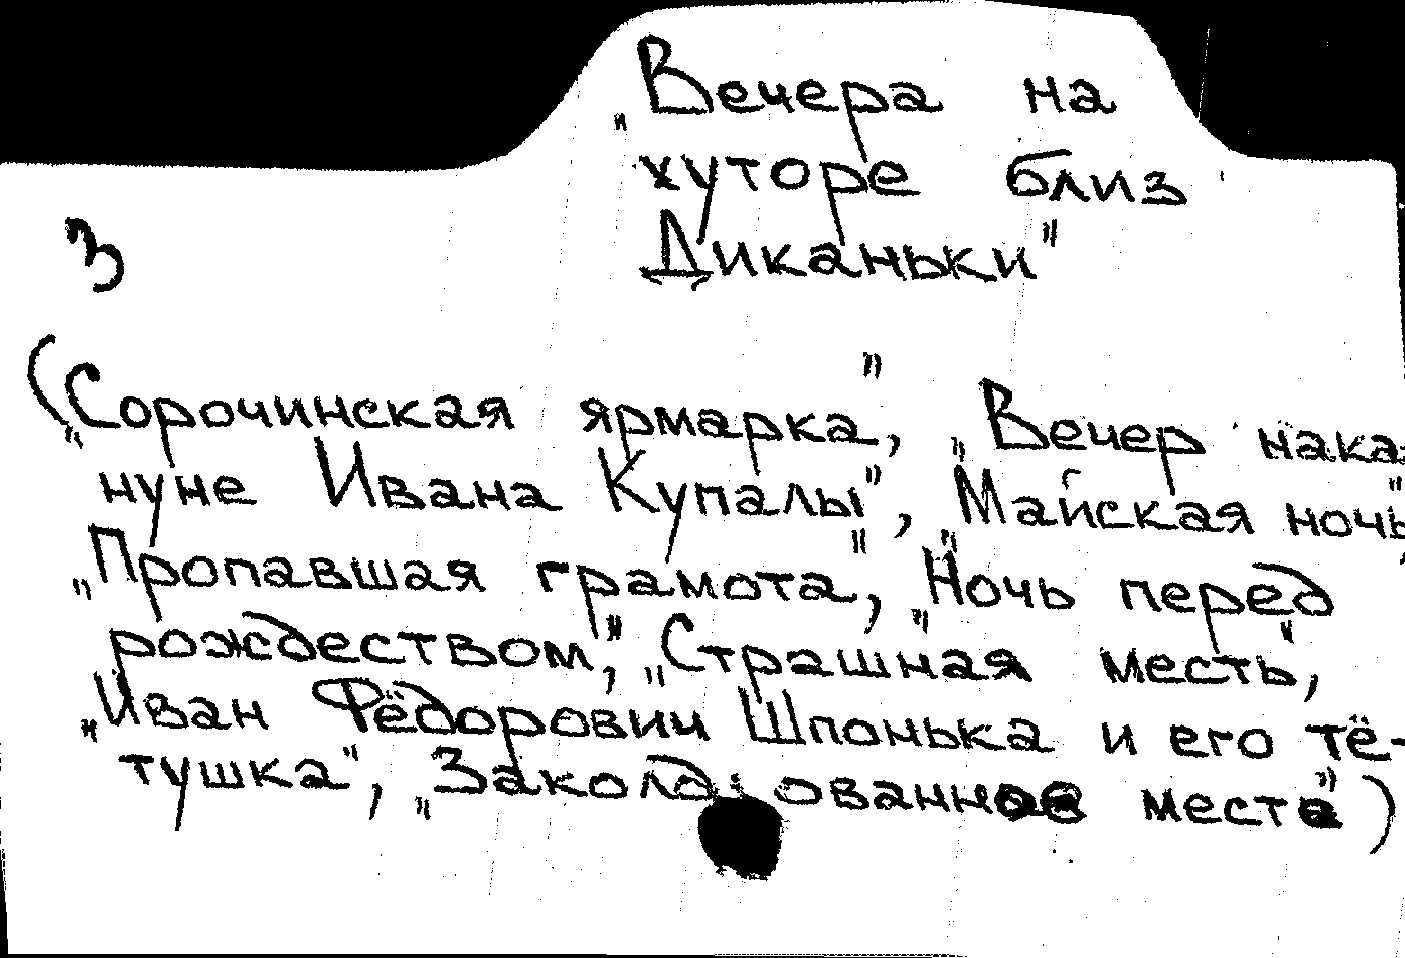 „Вечера на
хуторе близ
Диканьки"
3
(„Сорочинская ярмарка", „Вечер нака-
нуне Ивана Купалы", „Майская ночь",
„Пропавшая грамота", „Ночь перед
рождеством", „Страшная месть",
„Иван Фёдорович Шпонька и его тё-
тушка", „Заколдованное место")